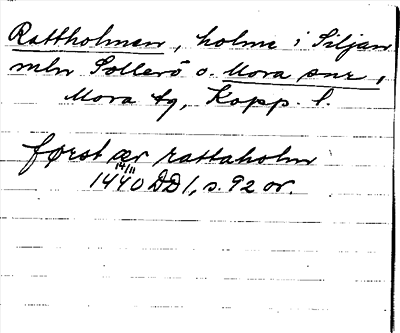 Rattholmen, holme i Siljan
mln Sollerö o. Mora snr,
Mora tg, Kopp. l.
førstær rattaholm
14/11
1440 DD 1, s. 92 or.